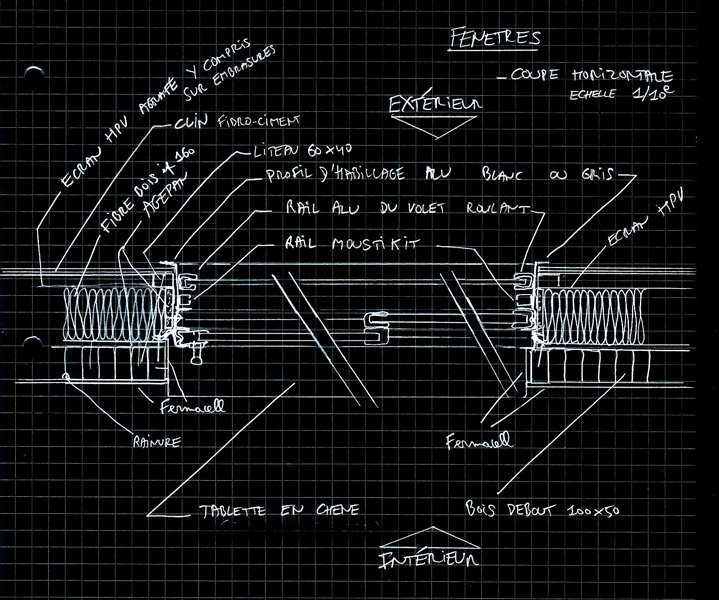 FENETRES
- COUPE HORIZONTALE
ECHELLE 1/10e
EXTÉRIEUR
ECRAN HPV AGRAFÉ Y COMPRIS
SUR EMBRASURES
CLIN FIBRO-CIMENT
FIBRE BOIS 160
AGEPAN
LITEAU 60x40
PROFIL D'HABILLAGE ALU BLANC OU GRIS
RAIL ALU DU VOLET ROULANT
ECRAN HPV
RAIL MOUSTIKIT
Fermacell
Fermacell
RAINURE
TABLETTE EN CHENE
BOIS DEBOUT 100x50
INTÉRIEUR